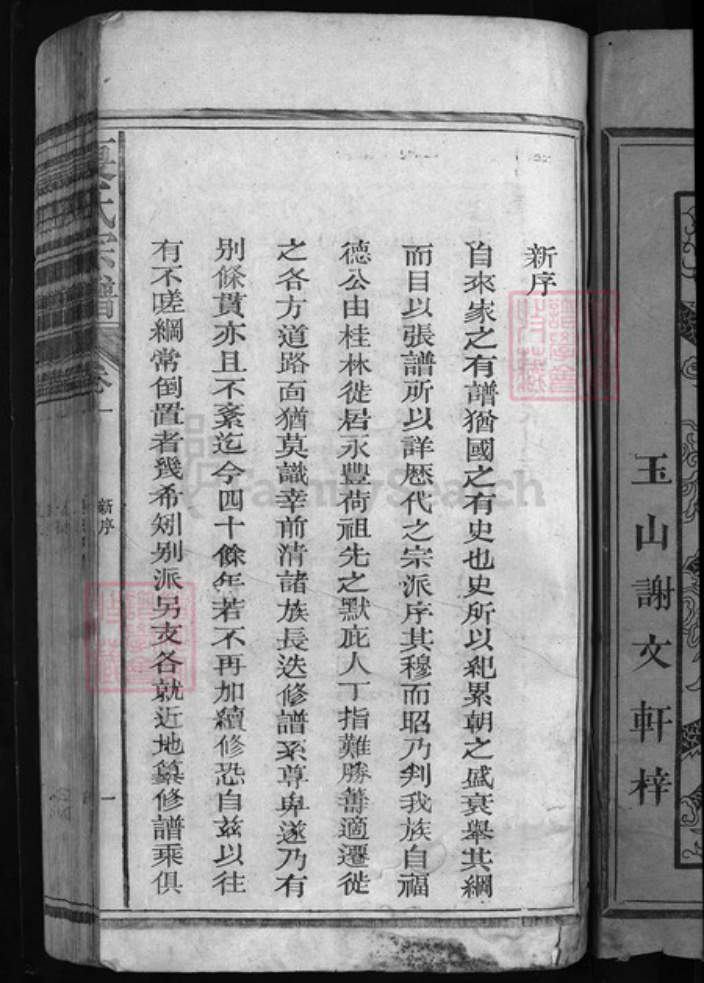 玉山謝文軒梓
新序
自來家之有譜猶國之有史也史所以紀累朝之盛衰舉其綱
而目以張譜所以詳歷代之宗派序其穆而昭乃判我族自福
德公由桂林徙居永豐荷祖先之默庇人丁指難勝籌適遷徙
之各方道路面猶莫識幸前清諸族長迭修譜系尊卑遂乃有
別條貫亦且不紊迄今四十餘年若不再加續修恐自茲以往
有不嗟綱常倒置者幾希矧別派另支各就近地纂修譜乘俱
氏宗譜
卷
新序
一
FamilySearch